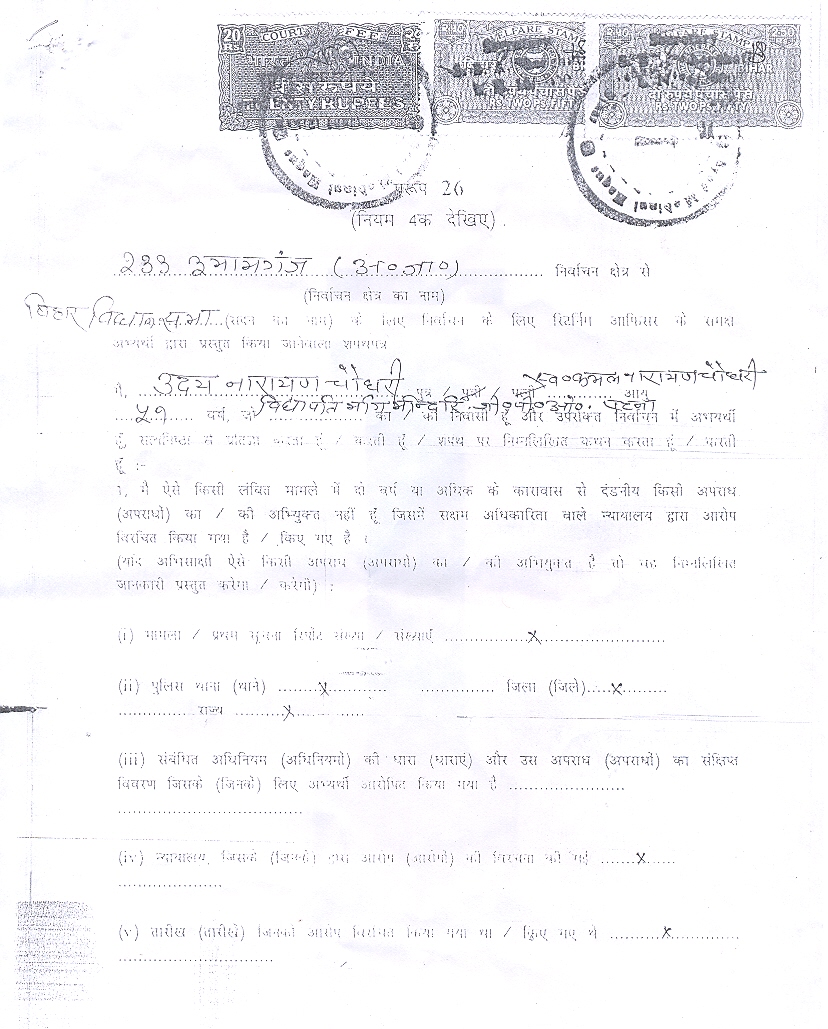 20 Rs. COURT FEE
भारत INDIA
बीस रूपये
RUPEES
WELFARE STAMP
RS. TWO PS. FIFTY
WELFARE STAMP
BIHAR
दो रूपये पचास पैसे
RS. TWO PS. FIFTY
प्ररूप 26
(नियम 4क देखिए) .
२३३ इमामगंज (अ०जा०) निर्वाचन क्षेत्र से
(निर्वाचन क्षेत्र का नाम)
बिहार विधान सभा (सदन का नाम) के लिए निर्वाचन के लिए रिटर्निंग आफिसर के समक्ष
अभ्यर्थी द्वारा प्रस्तुत किया जानेवाला शपथपत्र
मैं, उदय नारायण चौधरी पुत्र / पुत्री / पत्नी स्व० कमल नारायण चौधरी आयु
वर्ष, जो विद्यापति मार्ग जी०पी०ओ०. पटना का / की निवासी हूँ और उपरोक्त निर्वाचन में अभ्यर्थी
हूँ, सत्यनिष्ठा से प्रतिज्ञा करता हूँ / करती हूँ / शपथ पर निम्नलिखित कथन करता हूँ / करती
हूँ :-
1. मैं ऐसे किसी लंबित मामले में दो वर्ष या अधिक के कारावास से दंडनीय किसी अपराध
(अपराधों) का / की अभियुक्त नहीं हूँ जिसमें सक्षम अधिकारिता वाले न्यायालय द्वारा आरोप
विरचित किया गया है / किए गए है ।
(यदि अभिसाक्षी ऐसे किसी अपराध (अपराधों) का / की अभियुक्त है तो वह निम्नलिखित
जानकारी प्रस्तुत करेगा / करेगी) :
(i) मामला / प्रथम सूचना रिपोर्ट संख्या / संख्याएँ ..............x..............
(ii) पुलिस थाना (थाने) ........x........... .............. जिला (जिले)....x.........
.............. राज्य .........x...... ......
(iii) संबंधित अधिनियम (अधिनियमों) की धारा (धाराएं) और उस अपराध (अपराधों) का संक्षिप्त
विवरण जिसके (जिनके) लिए अभ्यर्थी आरोपित किया गया है ......................
..................................
(iv) न्यायालय, जिसके (जिनके) द्वारा आरोप (आरोपों) की विरचना की गई .......x......
....................
(v) तारीख (तारीखें) जिनको आरोप विरचित किया गया था / किए गए थे ..........x.............
.............................